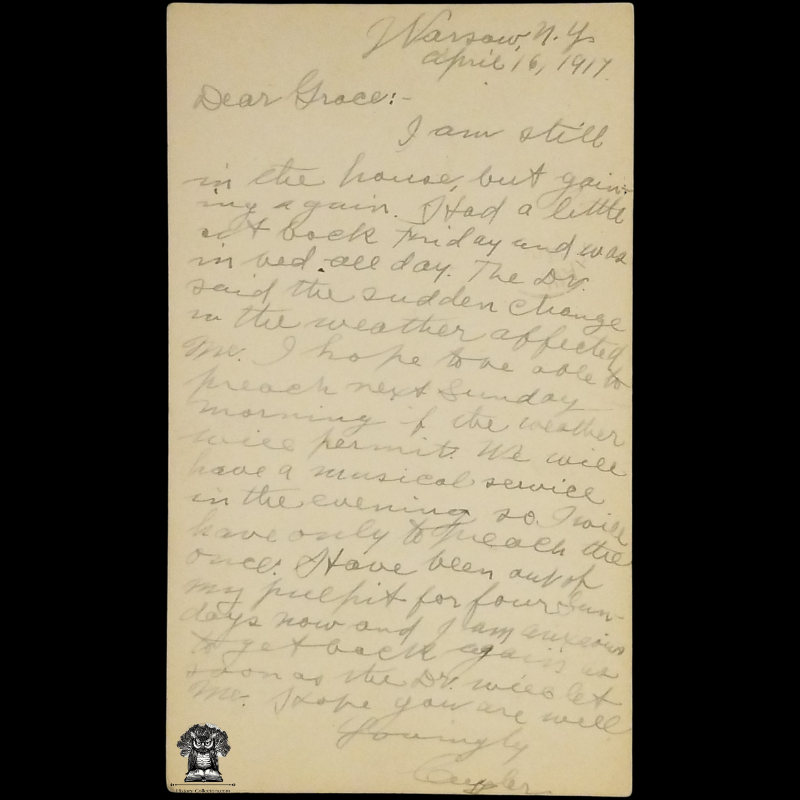 Warsaw, N.Y.
April 16, 1917.
Dear Grace:-
I am still
in the house, but gain-
ing again. Had a little
set back Friday and was
in bed all day. The Dr.
said the sudden change
in the weather affected
me. I hope to be able to
preach next Sunday
morning if the weather
will permit. We will
have a musical service
in the evening so I will
have only to preach the
once. Have been out of
my pulpit for four Sun-
days now and I am anxious
to get back again as
soon as the Dr. will let
me. Hope you are well
Lovingly